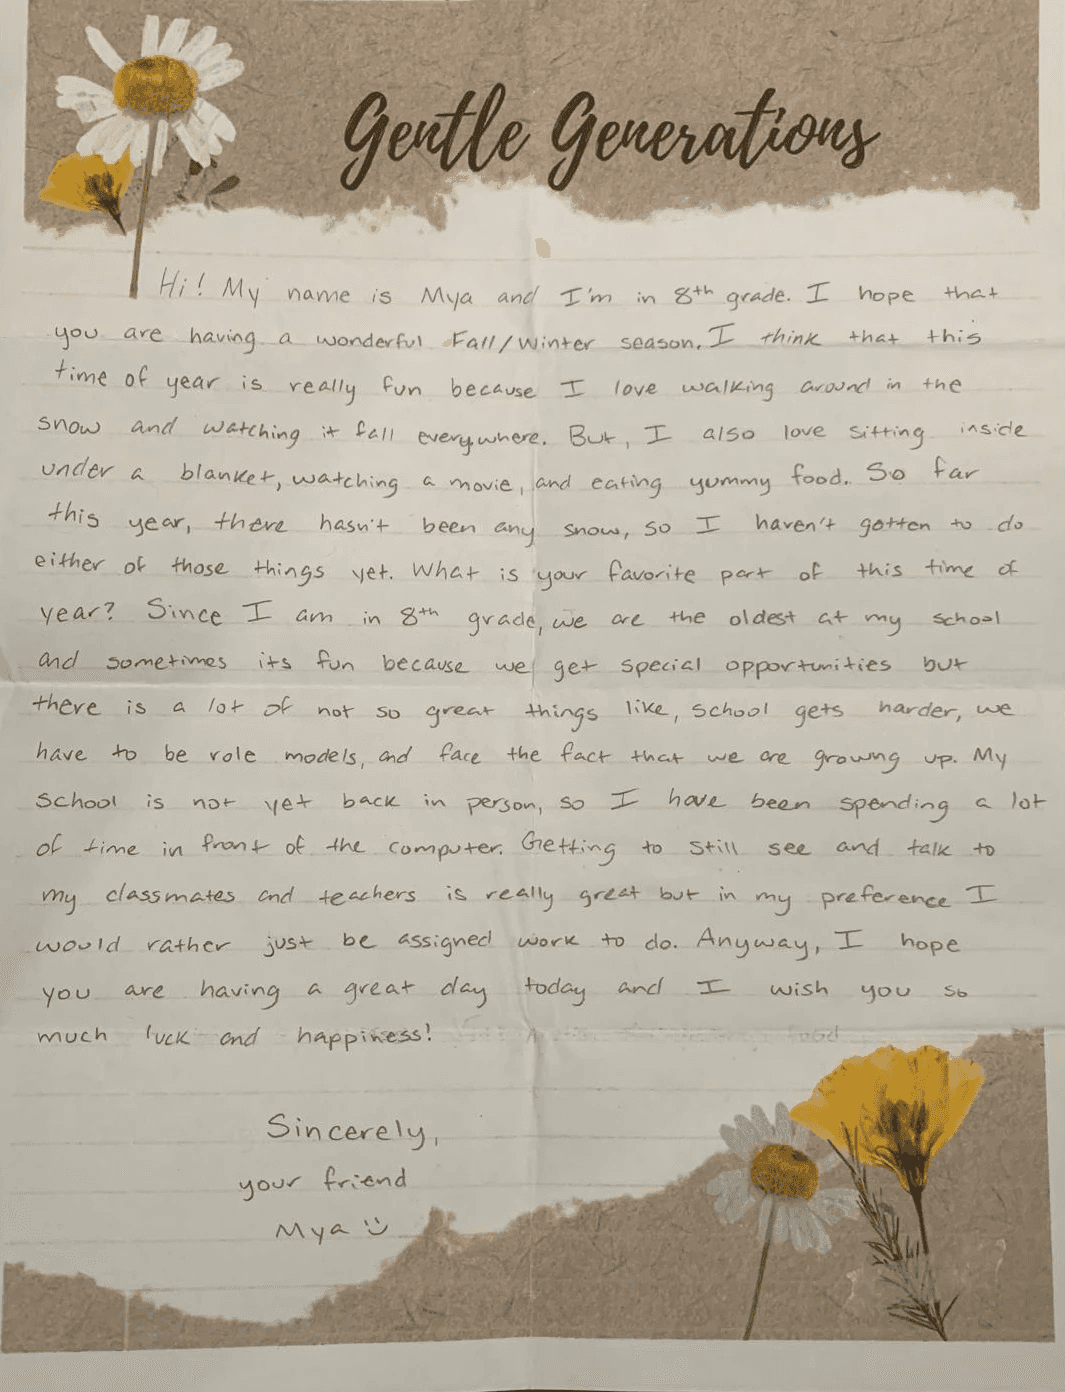 Gentle Generations
Hi! My name is Mya and I'm in 8th grade. I hope that
you are having a wonderful Fall/Winter season. I think that this
time of year is really fun because I love walking around in the
snow and watching it fall everywhere. But, I also love sitting inside
under a blanket, watching a movie, and eating yummy food. So far
this year, there hasn't been any snow, so I haven't gotten to do
either of those things yet. What is your favorite part of this time of
year? Since I am in 8th grade, we are the oldest at my school
and sometimes its fun because we get special opportunities but
there is a lot of not so great things like, school gets harder, we
have to be role models, and face the fact that we are growng up. My
school is not yet back in person, so I have been spending a lot
of time in front of the computer. Getting to still see and talk to
my classmates and teachers is really great but in my preference I
would rather just be assigned work to do. Anyway, I hope
you are having a great day today and I wish you so
much luck and happiness!
Sincerely,
your friend
Mya